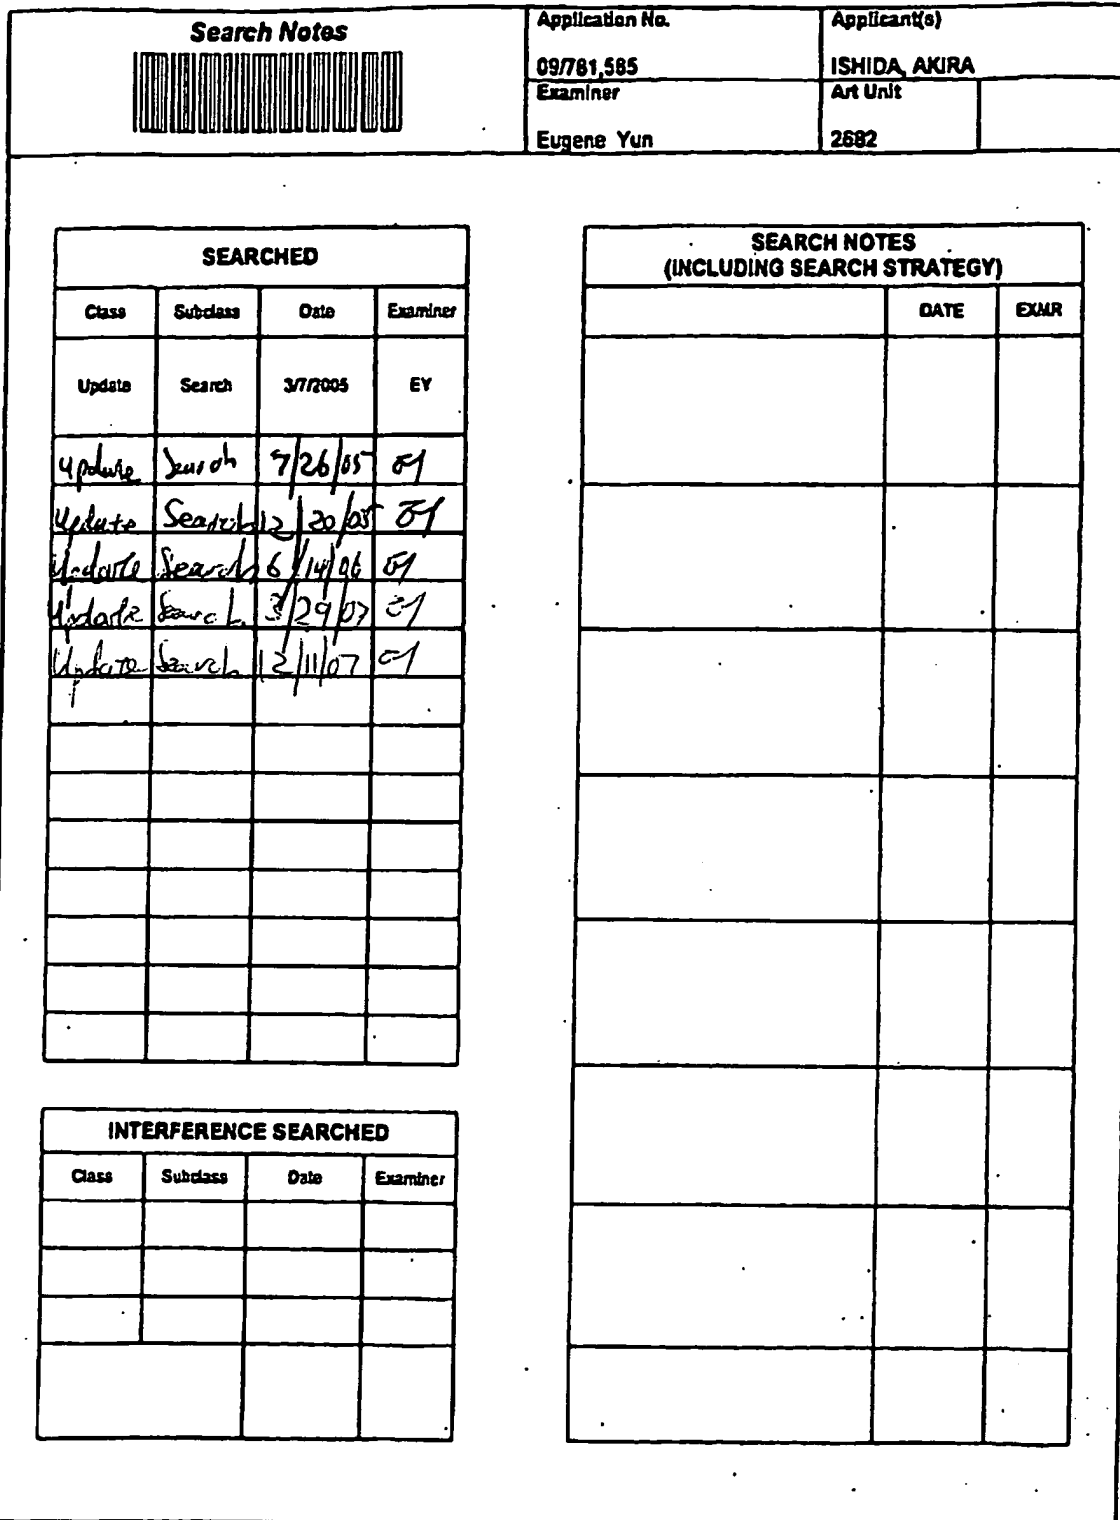 Search Notes
Application No.
Applicant(s)
09/781,585
ISHIDA, AKIRA
Examiner
Art Unit
Eugene Yun
2682
SEARCHED
Class Subclass Date Examiner
Update Search 3/7/2005 EY
Update Search 7/26/05 EY
Update Search 12/20/05 EY
Update Search 6/14/06 EY
Update Search 3/29/07 EY
Update Search 12/11/07 EY
INTERFERENCE SEARCHED
Class Subclass Date Examiner
SEARCH NOTES
(INCLUDING SEARCH STRATEGY)
DATE EXMR